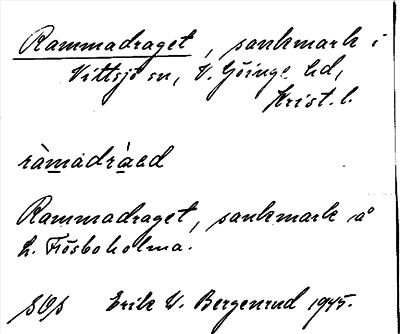 Rammadraget, sankmark i
Vittsjö sn, V. Göinge hd,
Krist. l.
ràmadràed
Rammadraget, sankmark å
L. Frösboholma.
Erik W. Bergenrud 1945.